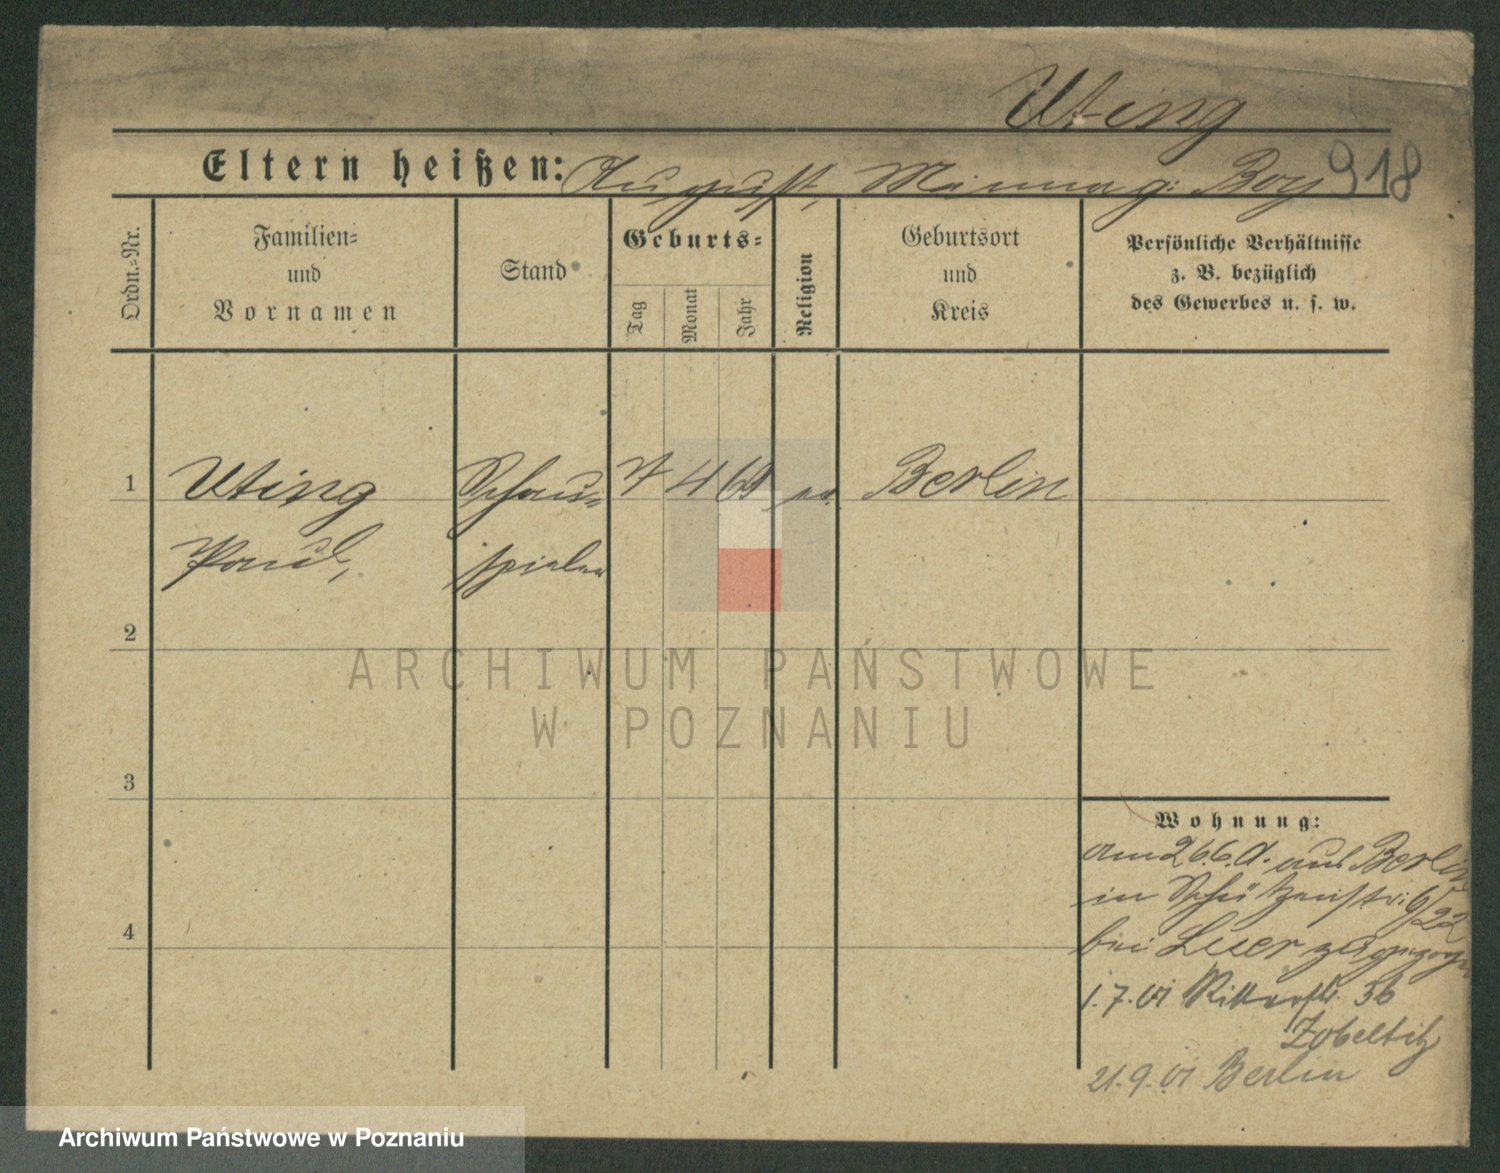 Uting
Eltern heißen: August, Minna g: Boy 918
Ordn.-Nr.
Familien-
und
Vornamen
Stand
Geburts-
Tag
Monat
Jahr
Religion
Geburtsort
und
Kreis
Persönliche Verhältnisse
z. B. bezüglich
des Gewerbes u. s. w.
1 Uting Schau- 7 4 69 ev. Berlin
Paul, spieler
2
3
4
ARCHIWUM PAŃSTWOWE
W POZNANIU
Wohnung:
am 26.6. aus Berlin
in Schützenstr. 6/22
bei Luer zugezogen
1.7.01 Ritterstr. 36
Zobeltitz
21.9.01 Berlin
Archiwum Państwowe w Poznaniu